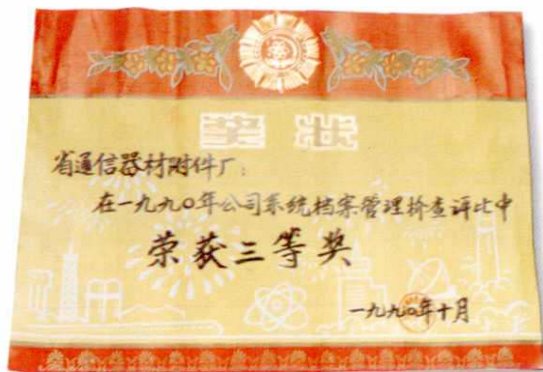 奖状
省通信器材附件厂：
在一九九〇年公司系统档案管理检查评比中
荣获三等奖
一九九〇年十月